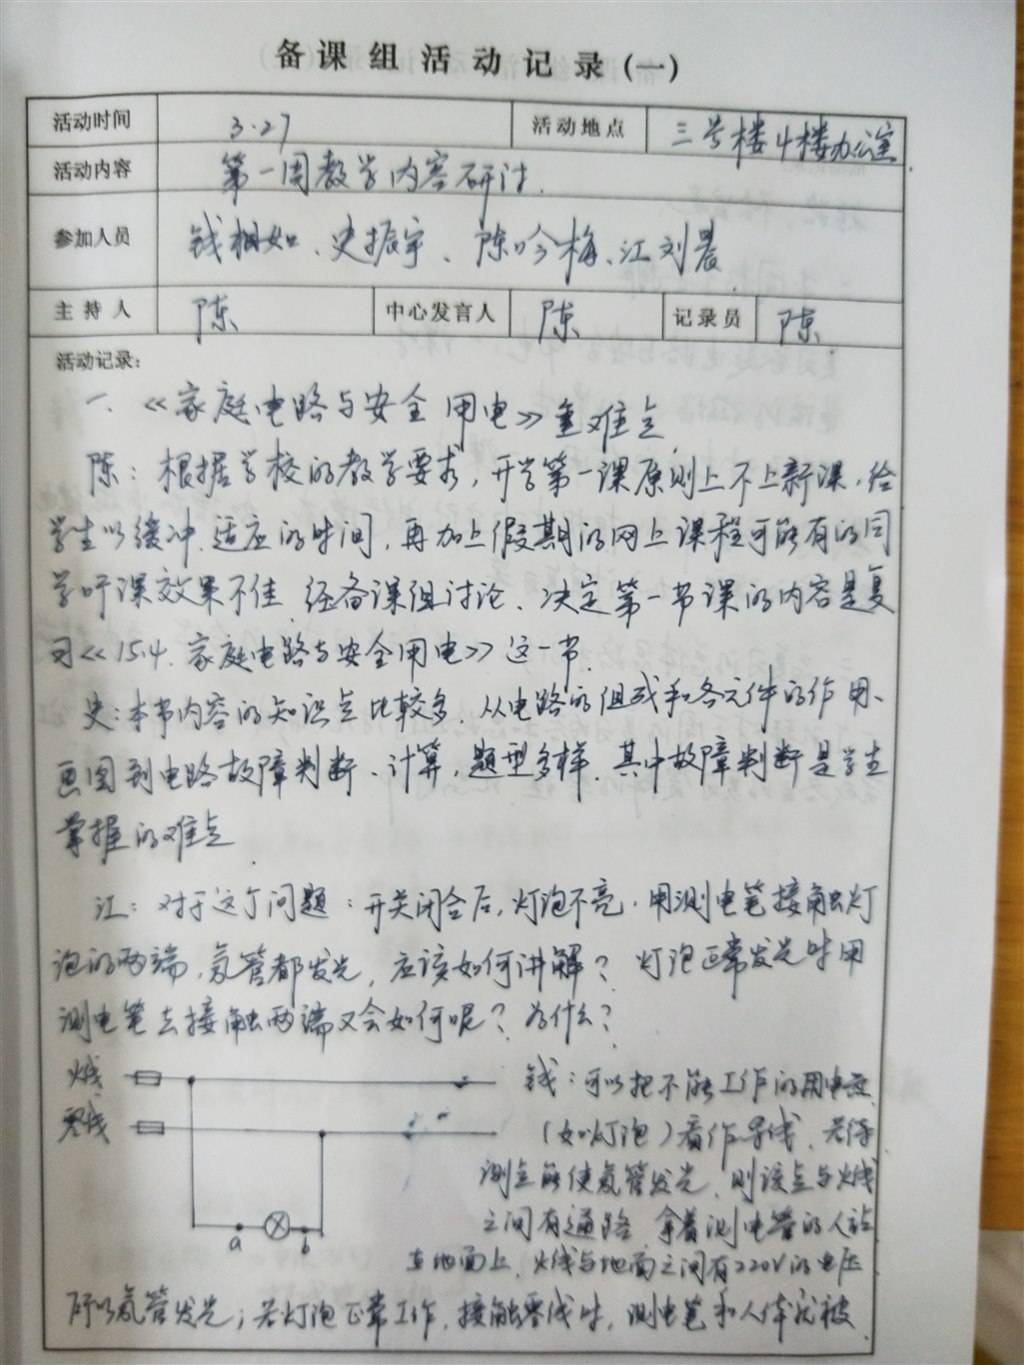 备课组活动记录(一)
活动时间 3.27 活动地点 三号楼4楼办公室
活动内容 第一周教学内容研讨.
参加人员 钱相如、史振宇、陈吟梅、江刘晨
主持人 陈 中心发言人 陈 记录员 陈
活动记录:
一.《家庭电路与安全用电》重难点
陈:根据学校的教学要求,开学第一课原则上不上新课,给
学生以缓冲.适应的时间,再加上假期的网上课程可能有的同
学听课效果不佳.经备课组讨论、决定第一节课的内容是复
习《15.4.家庭电路与安全用电》这一节.
史:本节内容的知识点比较多.从电路的组成和各元件的作用、
画图到电路故障判断、计算,题型多样.其中故障判断是学生
掌握的难点.
江:对于这个问题:开关闭合后,灯泡不亮.用测电笔接触灯
泡的两端,氖管都发光,应该如何讲解?灯泡正常发光时用
测电笔去接触两端又会如何呢?为什么?
火线
零线
a b
钱:可以把不能工作的用电器
(如灯泡)看作导线.若待
测点能使氖管发光,则该点与火线
之间有通路.拿着测电管的人站
在地面上,火线与地面之间有220V的电压
所以氖管发光;若灯泡正常工作,接触零线时,测电笔和人体就被